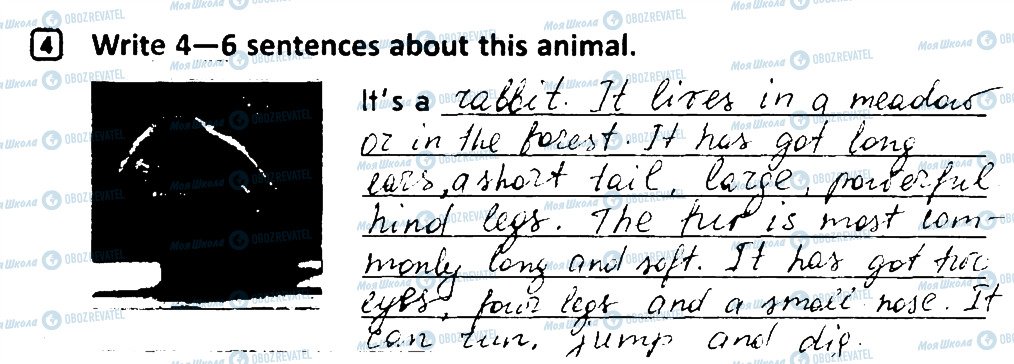 4 Write 4—6 sentences about this animal.
It's a rabbit. It lives in a meadow
or in the forest. It has got long
ears, a short tail, large, powerful
hind legs. The fur is most com-
monly long and soft. It has got two
eyes, four legs and a small nose. It
can run, jump and dig.
Моя Школа OBOZREVATEL